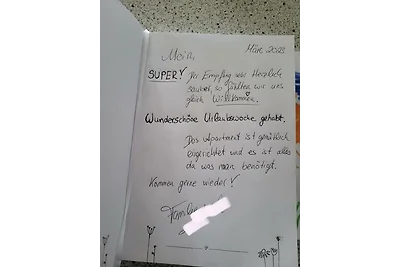 Moin,
März 2023
SUPER! Ihr Empfang war Herzlich
sauber, so fühlten wir uns
gleich Willkommen.
Wunderschöne Urlaubswoche gehabt.
Das Apartment ist gemütlich
eigerichtet und es ist alles
da was man benötigt.
Kommen gerne wieder!
Familie